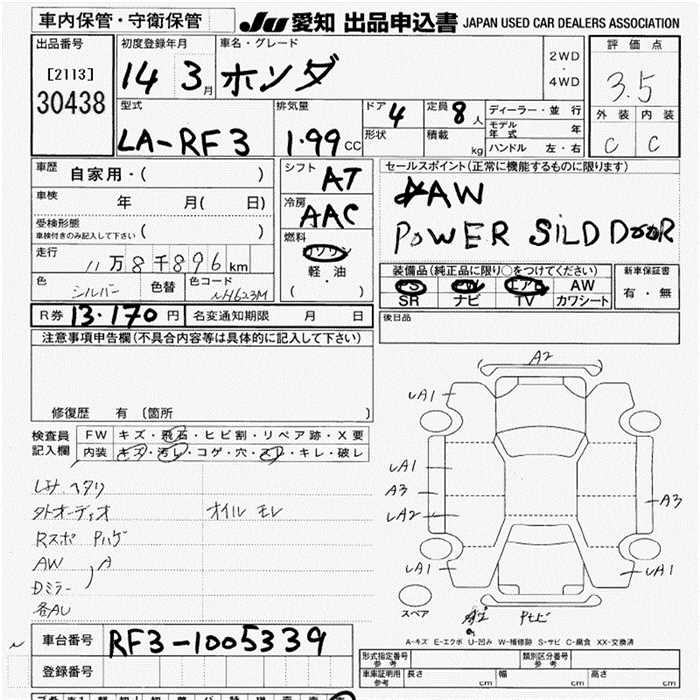 車内保管・守衛保管
JU 愛知 出品申込書 JAPAN USED CAR DEALERS ASSOCIATION
出品番号 初度登録年月 車名・グレード 2WD・4WD 評価点
[2113] 14 3月 ホンダ 3.5
30438
型式 排気量 ドア 4 定員 8人 ディーラー・並行 外装 内装
LA-RF3 1.99cc 形状 積載 kg モデル年式 年 C C
ハンドル 左・右
車歴 自家用・( )
シフト AT
セールスポイント(正常に機能するものに限ります)
車検 年 月( 日)
冷房 AAC
AW
受検形態
車検付きのみ記入して下さい
POWER SILD DOOR
燃料 ガソリン
軽・油
( )
走行 11万8千896km
装備品(純正品に限り○をつけてください) 新車保証書
PS PW エアB AW 有・無
SR ナビ TV カワシート
色 シルバー 色替 色コード NH623M
後日品
R券 13,170円 名変通知期限 月 日
注意事項申告欄(不具合内容等は具体的に記入して下さい)
修復歴 有 (箇所 )
検査員記入欄 FW キズ・飛石・ヒビ割・リペア跡・X要
内装 キズ・汚レ・コゲ・穴・スレ・キレ・破レ
外オーディオ オイルモレ
Rスポ Pハゲ
AW A
Dミラー
各AU
A2
A1
A1
A3
A2
A3
A1
A1
スペア
A2 Pサビ
A-キズ E-エクボ U-凹み W-補修跡 S-サビ C-腐食 XX-交換済
車台番号 RF3-1005339
登録番号
形式指定番号 参考 類別区分番号 参考
車庫証明用 参考 長さ cm 幅 cm 高さ cm